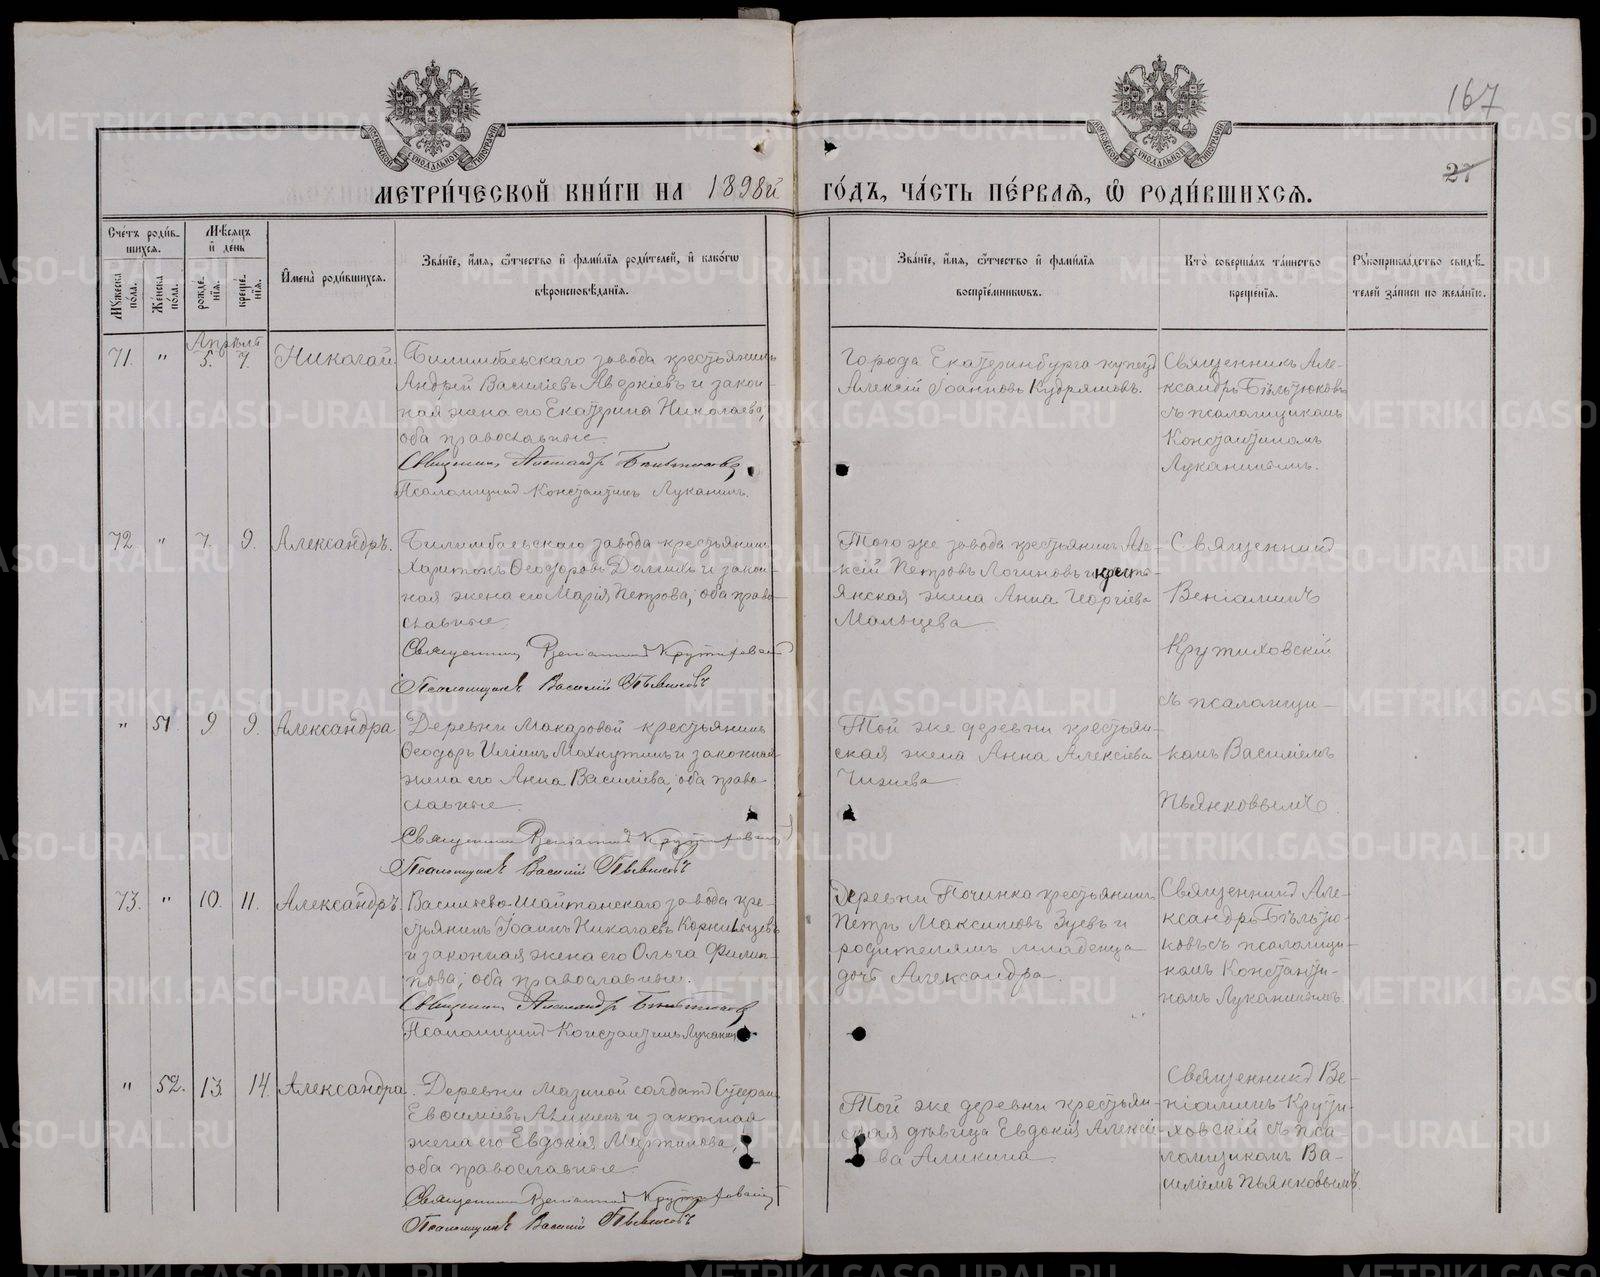 167
27
МОСКОВСКОЙ СѴНОДАЛЬНОЙ ТИПОГРАФІИ
МОСКОВСКОЙ СѴНОДАЛЬНОЙ ТИПОГРАФІИ
МЕТРИ́ЧЕСКОЙ КНИ́ГИ НА 1898й ГО́ДЪ, ЧА́СТЬ ПЕ́РВАЯ, Ѡ РОДИ́ВШИХСЯ.
Сче́тъ роди́в-
шихся.
Мѣ́сяцъ
и҆ де́нь
Мꙋ́жеска по́ла.
Же́нска по́ла.
рожде́-
нїя.
креще́-
нїя.
И҆мена̀ роди́вшихся.
Зва́нїе, и҆́мя, ѻ҆́тчество и҆ фами́лїя роди́телей, и҆ како́гѡ
вѣроисповѣ́данїя.
Зва́нїе, и҆́мя, ѻ҆́тчество и҆ фами́лїя
воспрїе́мниковъ.
Кто̀ соверша́лъ та́инство
креще́нїя.
Рꙋкоприкла́дство свидѣ́-
телей за́писи по жела́нїю.
Апрѣль
71. " 5. 7. Николай.
Билимбаевскаго завода крестьянинъ
Андрей Василіевъ Аверкіевъ и закон-
ная жена его Екатерина Николаева,
оба православные.
Священник Александр Бѣльтюков
Псаломщик Константинъ Луканинъ.
Города Екатеринбурга купец
Алексій Іоанновъ Кудряшовъ.
Священникъ Але-
ксандръ Бѣльтюковъ
съ псаломщикомъ
Константиномъ
Луканинымъ.
72 " 7. 9. Александръ.
Билимбаевскаго завода крестьянинъ
Харитонъ Ѳеодоровъ и закон-
ная жена его Марія Петрова, оба право-
славные.
Священник Веніамин Крутиховский
Псаломщикъ Василій Пьянковъ
Того же завода крестьянинъ Але-
ксій Петровъ Логиновъ и кресть-
янская жена Анна Георгіева
Мальцева
Священник
Веніаминъ
Крутиховскій
съ псаломщи-
комъ Василіемъ
Пьянковымъ
" 51. 9 9. Александра
Деревни Макаровой крестьянинъ
Ѳеодоръ Иліинъ Махнутинъ и законная
жена его Анна Василіева, оба право-
славные.
Священник Веніамин Крутиховский
Псаломщикъ Василій Пьянковъ
Той же деревни крестьян-
ская жена Анна Алексіева
73. " 10. 11. Александръ
Васильево-Шайтанскаго завода кре-
стьянинъ Іоаннъ Николаевъ Корнильцевъ
и законная жена его Ольга Филип-
пова, оба православные.
Священник Александр Бѣльтюков
Псаломщик Константинъ Луканинъ
Деревни Починка крестьянинъ
Петръ Максимовъ Зуевъ и
родителямъ младенца
дочь Александра.
Священник Але-
ксандръ Бѣльтю-
ковъ съ псаломщи-
комъ Константи-
номъ Луканинымъ.
" 52. 13. 14. Александра.
Деревни Мазиной солдат
Евѳиміевъ Аликинъ и законная
жена его Евдокія Мартинова,
оба православные.
Священник Веніамин Крутиховский
Псаломщикъ Василій Пьянковъ
Той же деревни крестьян-
ская дѣвица Евдокія Алексіе-
ва Аликина.
Священник Ве-
ніаминъ Крути-
ховскій съ пса-
ломщикомъ Ва-
силіемъ Пьянковымъ.
METRIKI.GASO-URAL.RU